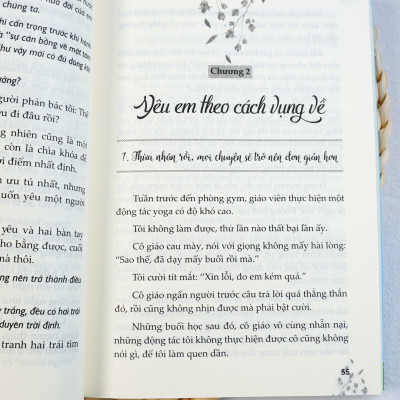 chúng ta.
khi cẩn trọng trước khi hành
là "sự cân bằng về mặt
như vậy mới có đủ dũng
người phản bác tôi: Thế
êu đi đâu rồi?
ng nhiên cũng là một
còn là chìa khóa để
i điểm nhất định.
ưu tú nhất, nhưng
uốn yêu một người
yêu và hai bàn tay
ho bằng được, cuối
mà thôi.
ng nên trở thành điều
trắng, đều có hai trái
duyên trời định.
tranh hai trái tim
Chương 2
Yêu em theo cách vụng về
1. Thừa nhận rồi, mọi chuyện sẽ trở nên đơn giản hơn
Tuần trước đến phòng gym, giáo viên thực hiện một
động tác yoga có độ khó cao.
Tôi không làm được, thử lần nào thất bại lần ấy.
Cô giáo cau mày, nói với giọng không mấy hài lòng:
"Sao thế, đã dạy mấy buổi rồi mà."
Tôi cười tít mắt: "Xin lỗi, do em kém quá."
Cô giáo ngẩn người trước câu trả lời quá thẳng thắn
đó, rồi cũng không nhịn được mà phải bật cười.
Những buổi học sau đó, cô giáo vô cùng nhẫn nại,
những động tác tôi không thực hiện được cô cũng không
nói gì, để tôi làm quen dần.
55